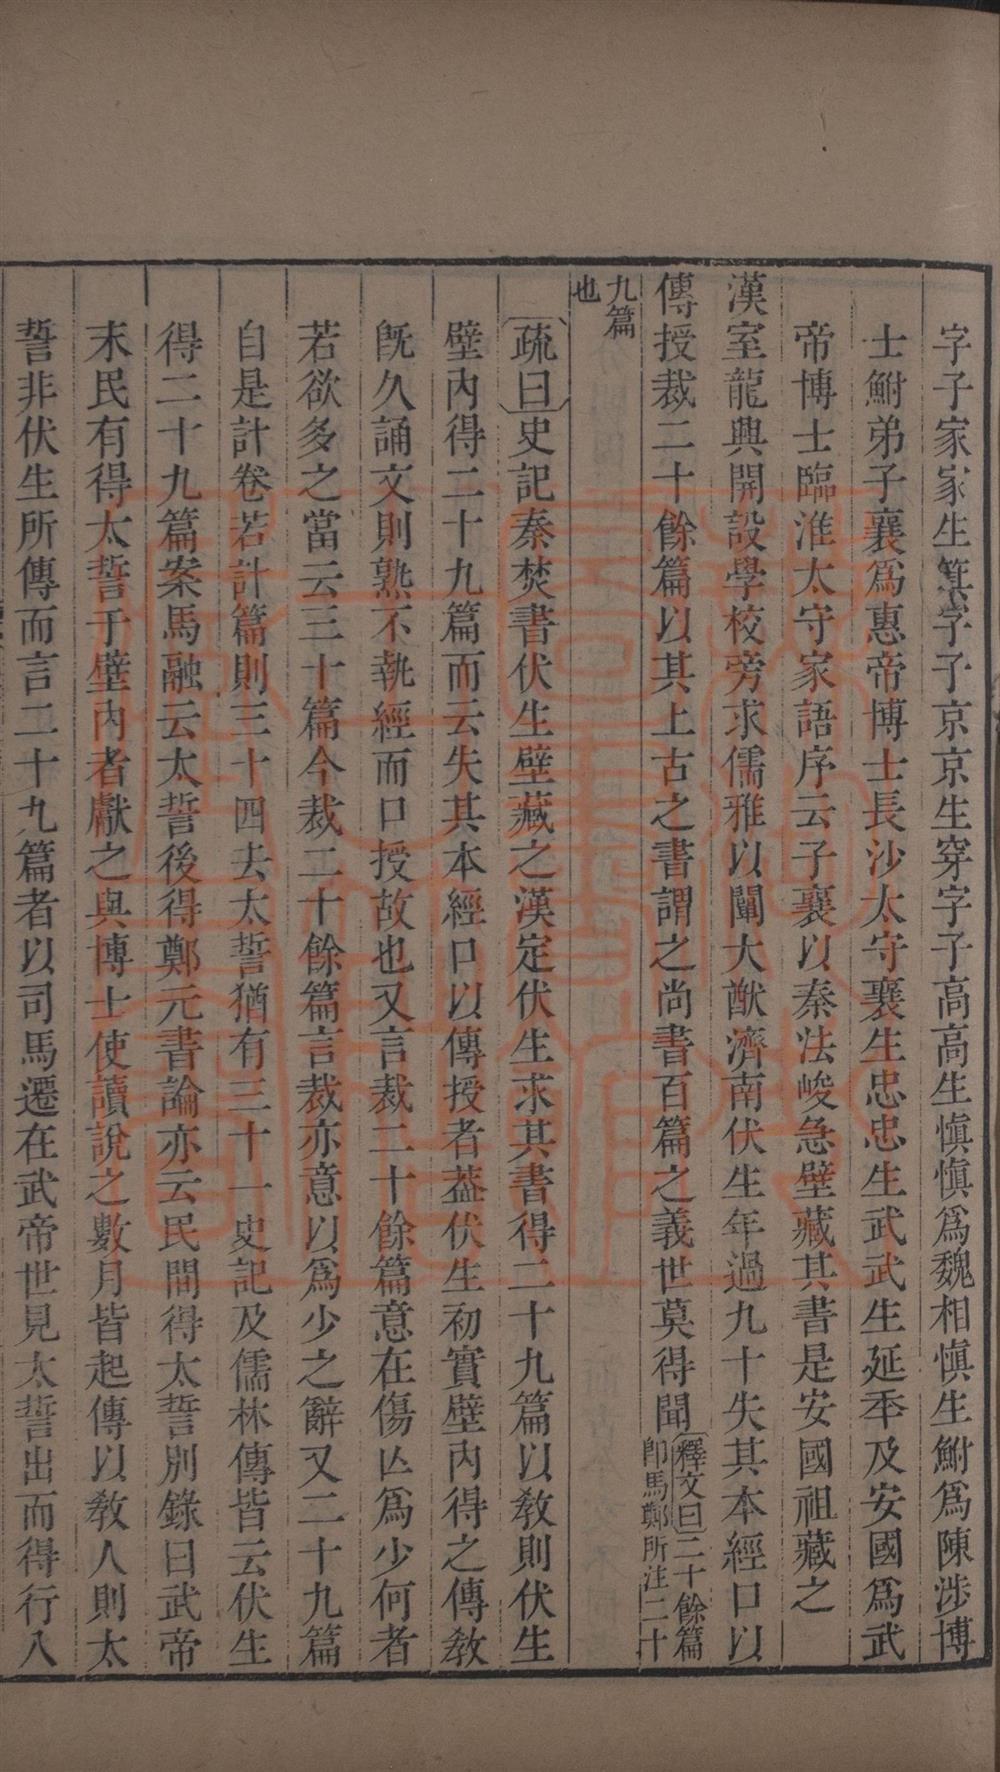 字子家家生箕字子京京生穿字子高高生愼愼爲魏相愼生鮒爲陳涉博
士鮒弟子襄爲惠帝博士長沙太守襄生忠忠生武武生延年及安國爲武
帝博士臨淮太守家語序云子襄以秦法峻急壁藏其書是安國祖藏之
漢室龍興開設學校旁求儒雅以闡大猷濟南伏生年過九十失其本經口以
傳授裁二十餘篇以其上古之書謂之尚書百篇之義世莫得聞釋文曰二十餘篇
卽馬鄭所注二十
九篇
也
疏曰史記秦焚書伏生壁藏之漢定伏生求其書得二十九篇以敎則伏生
壁內得二十九篇而云失其本經口以傳授者葢伏生初實壁內得之傳敎
旣久誦文則熟不執經而口授故也又言裁二十餘篇意在傷亾爲少何者
若欲多之當云三十篇今裁二十餘篇言裁亦意以爲少之辭又二十九篇
自是計卷若計篇則三十四去太誓猶有三十一史記及儒林傳皆云伏生
得二十九篇案馬融云太誓後得鄭元書論亦云民間得太誓別錄曰武帝
末民有得太誓于壁內者獻之與博士使讀說之數月皆起傳以敎人則太
誓非伏生所傳而言二十九篇者以司馬遷在武帝世見太誓出而得行入